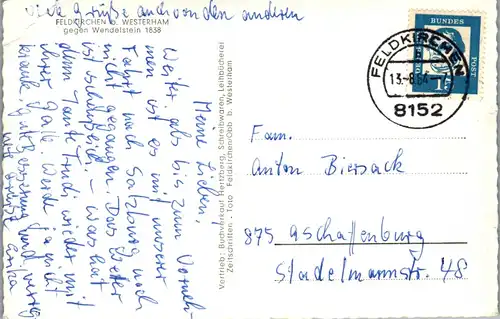 Viele Grüße auch von den anderen
FELDKIRCHEN b. WESTERHAM
gegen Wendelstein 1838
Meine Lieben!
Weiter als bis zum Vorneh-
men ist es mit unserer
Fahrt nach Salzburg noch
nicht gegangen. Das Wetter
ist scheußlich. – Was hat
denn Tante Trudi wieder mit
ihrer Galle. Werde ja nicht
krank. Gute Besserung und
Grüße
Erika
Vertrieb: Buchverkauf Hertzberg, Schreibwaren, Leihbücherei
Zeitschriften - Toto Feldkirchen/Obb b. Westerham
DEUTSCHE
BUNDES
POST
FELDKIRCHEN
b
13.-8.64.-7
8152
Fam.
Anton Biersack
875 Aschaffenburg
Stadelmannstr. 48